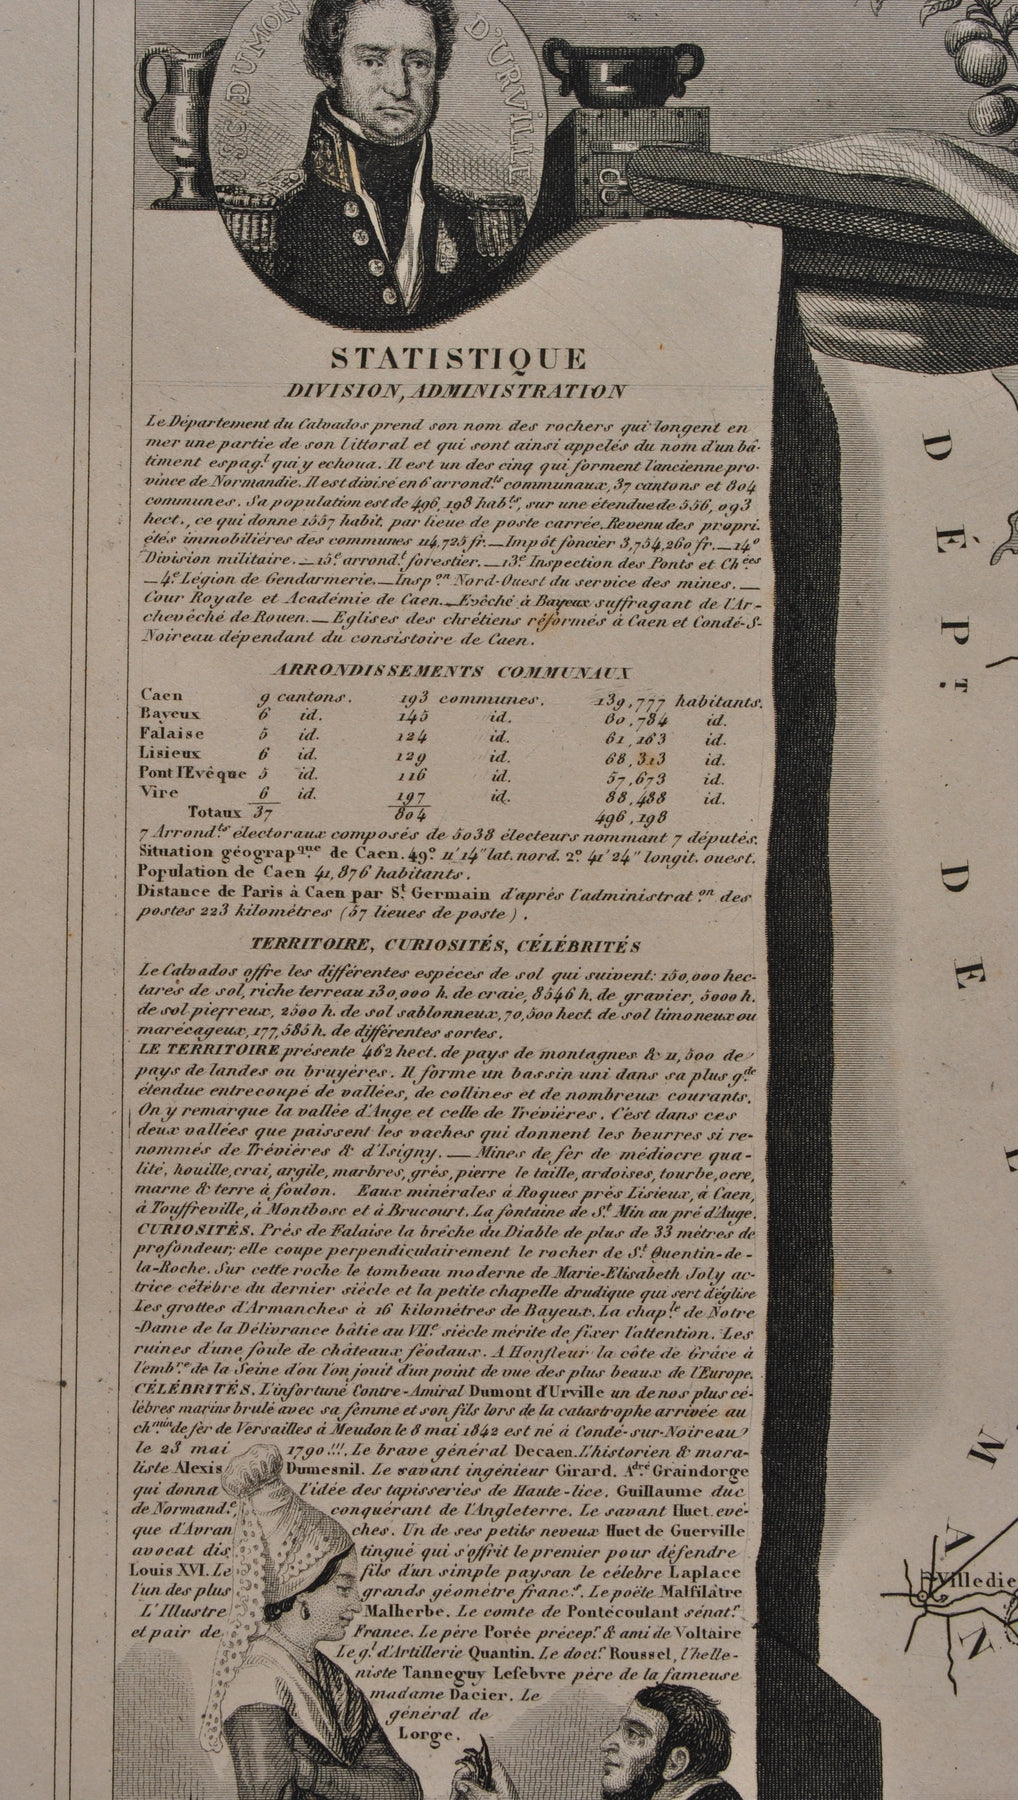 J. SC. DUMONT D'URVILLE
STATISTIQUE
DIVISION, ADMINISTRATION
Le Département du Calvados prend son nom des rochers qui longent en
mer une partie de son littoral et qui sont ainsi appelés du nom d'un bâ-
timent espag.l qui y echoua. Il est un des cinq qui forment l'ancienne pro-
vince de Normandie. Il est divisé en 6 arrond.ts communaux, 37 cantons et 804
communes. Sa population est de 496,198 hab.ts, sur une étendue de 556,093
hect., ce qui donne 1557 habit. par lieue de poste carrée. Revenu des propri-
étés immobilières des communes 114,725 fr. — Impôt foncier 3,754,260 fr. — 14e
Division militaire. — 15e arrond.t forestier. — 13e Inspection des Ponts et Ch.ées
— 4e Légion de Gendarmerie. — Insp.on Nord-Ouest du service des mines. —
Cour Royale et Académie de Caen. — Evêché à Bayeux suffragant de l'Ar-
chevêché de Rouen. — Eglises des chrétiens réformés à Caen et Condé-S-
Noireau dépendant du consistoire de Caen.
ARRONDISSEMENTS COMMUNAUX
Caen 9 cantons. 193 communes. 139,777 habitants.
Bayeux 6 id. 145 id. 60,784 id.
Falaise 5 id. 124 id. 61,163 id.
Lisieux 6 id. 129 id. 68,313 id.
Pont l'Evêque 5 id. 116 id. 57,673 id.
Vire 6 id. 197 id. 88,488 id.
Totaux 37 804 496,198
7 Arrond.ts électoraux composés de 5038 électeurs nommant 7 députés.
Situation géograp.que de Caen. 49° 11' 14" lat. nord. 2° 41' 24" longit. ouest.
Population de Caen 41,876 habitants.
Distance de Paris à Caen par St Germain d'après l'administrat.on des
postes 223 kilomètres (57 lieues de poste).
TERRITOIRE, CURIOSITÉS, CÉLÉBRITÉS
Le Calvados offre les différentes espèces de sol qui suivent: 150,000 hec-
tares de sol, riche terreau 130,000 h. de craie, 8546 h. de gravier, 5000 h.
de sol pierreux, 2500 h. de sol sablonneux, 70,500 hect. de sol limoneux ou
marécageux, 177,585 h. de différentes sortes.
LE TERRITOIRE présente 462 hect. de pays de montagnes & 11,500 de
pays de landes ou bruyères. Il forme un bassin uni dans sa plus g.de
étendue entrecoupé de vallées, de collines et de nombreux courants.
On y remarque la vallée d'Auge et celle de Trévières. C'est dans ces
deux vallées que paissent les vaches qui donnent les beurres si re-
nommés de Trévières & d'Isigny. — Mines de fer de médiocre qua-
lité, houille, crai, argile, marbres, grés, pierre le taille, ardoises, tourbe, ocre,
marne & terre à foulon. Eaux minérales à Roques près Lisieux, à Caen,
à Touffreville, à Montbosc et à Brucourt. La fontaine de St Min au pré d'Auge.
CURIOSITÉS. Près de Falaise la brèche du Diable de plus de 33 mètres de
profondeur; elle coupe perpendiculairement le rocher de St Quentin-de-
la-Roche. Sur cette roche le tombeau moderne de Marie-Elisabeth Joly ac-
trice célèbre du dernier siècle et la petite chapelle drudique qui sert d'église
Les grottes d'Armanches à 16 kilomètres de Bayeux. La chap.le de Notre
-Dame de la Délivrance bâtie au VIIe siècle mérite de fixer l'attention. Les
ruines d'une foule de châteaux féodaux. A Honfleur la côte de Grâce à
l'emb.re de la Seine d'ou l'on jouit d'un point de vue des plus beaux de l'Europe.
CÉLÉBRITÉS. L'infortuné Contre-Amiral Dumont d'Urville un de nos plus cé-
lèbres marins brulé avec sa femme et son fils lors de la catastrophe arrivée au
ch.min de fer de Versailles à Meudon le 8 mai 1842 est né à Condé-sur-Noireau
le 23 mai 1790 !!!. Le brave général Decaen. L'historien & mora-
liste Alexis Dumesnil. Le savant ingénieur Girard. A.dré Graindorge
qui donna l'idée des tapisseries de Haute-lice. Guillaume duc
de Normand.e, conquérant de l'Angleterre. Le savant Huet evê-
que d'Avran ches. Un de ses petits neveux Huet de Guerville
avocat dis tingué qui s'offrit le premier pour défendre
Louis XVI. Le fils d'un simple paysan le célèbre Laplace
l'un des plus grands géomètre franc.s. Le poëte Malfilâtre
L'Illustre Malherbe. Le comte de Pontécoulant sénat.r
et pair de France. Le père Porée précep.r & ami de Voltaire
Le g.l d'Artillerie Quantin. Le doct.r Roussel, l'hellé-
niste Tanneguy Lefebvre père de la fameuse
madame Dacier. Le
général de
Lorge.
DÉPT DE L
MAN
Villedie